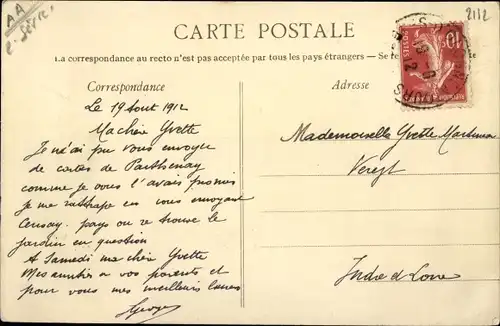 AA
2112
CARTE POSTALE
La correspondance au recto n'est pas acceptée par tous les pays étrangers — Se re
Correspondance
Adresse
Le 19 Aout 1912
Ma chère Yvette
Je n'ai pu vous envoyer
de cartes de Parthenay
comme je vous l'avais promis
je me rattrape en vous envoyant
pays ou se trouve le
jardin en question
A Samedi ma chère Yvette
Mes amitiés a vos parents et
pour vous mes meilleurs
Georges
Mademoiselle Yvette
Indre et Loire
POSTES
10